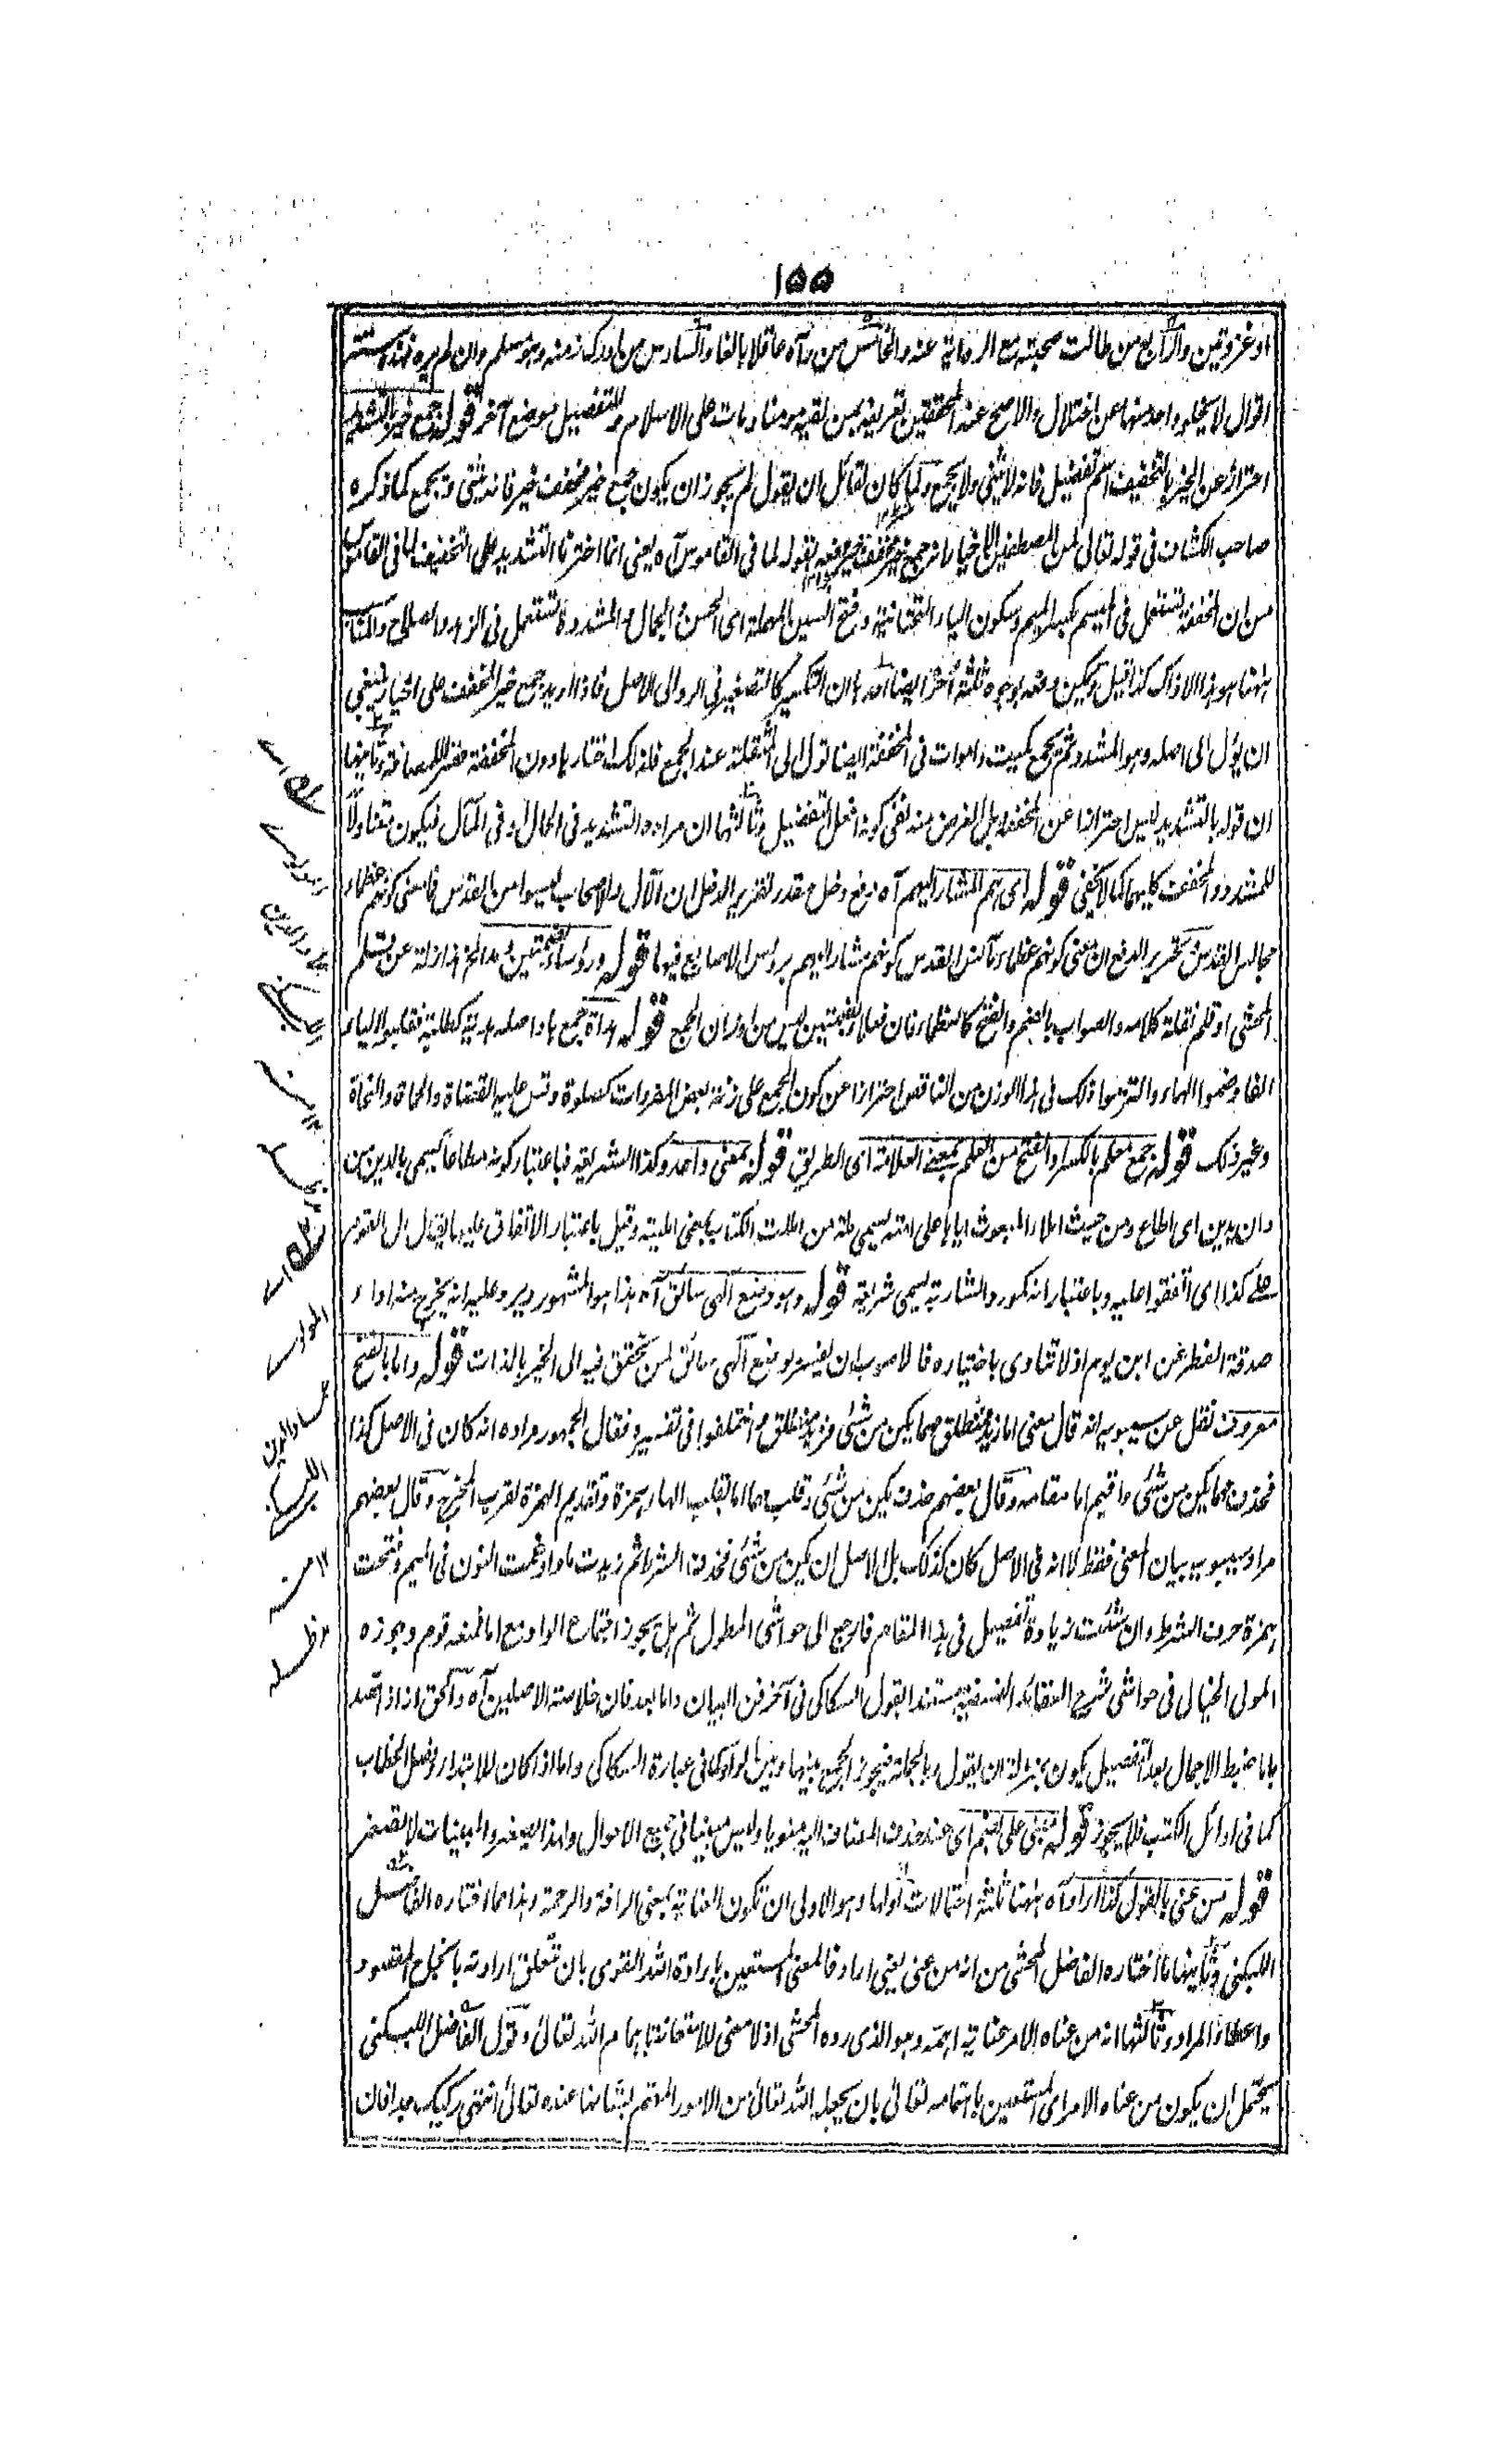 ١٥٥
او غزوتين والرابع من طالت صحبته مع الرواية عنه والخامس من رآه عاقلا بالغا والسادس من ادرك زمنه وهو مسلم وان لم يره فهذه ستة
اقوال لا يخلو واحد منها عن اختلال والاصح عند المحققين تعريفه بمن لقيه مومنا ومات على الاسلام وللتفصيل موضع آخر قوله جمع خير بالتشديد
احتراز عن الخير بالتخفيف اسم تفضيل فانه لا يثنى ولا يجمع ولما كان لقائل ان يقول لم يجوز ان يكون جمع خير مخفف خير فانه يثنى ويجمع كما ذكره
صاحب الكشاف فى قوله تعالى لمن المصطفين الاخيار انه جمع خير مخفف خير دفعه بقوله لما فى القاموس آه يعنى انما اخترنا التشديد على التخفيف لما فى القاموس
من ان المخففة تستعمل فى الميسم بكسر الميم وسكون الياء التحتانية وفتح السين المهملة اى الحسن والجمال والمشددة تستعمل فى الزهد والصلاح والمناسب
ههنا هو هذا لا ذاك كذا قيل ويمكن دفعه بوجوه ثلثة اخر ايضا احدها ان التكسير كالتصغير فى الرد الى الاصل فاذا اريد جمع خير المخفف على اخيار ينبغى
ان يؤل الى اصله وهو المشدد ثم يجمع كميت واموات فى المخففة ايضا تؤل الى المثقلة عند الجمع فلذلك اختارها دون المخففة حضرا للمسافة وثانيها
ان قوله بالتشديد ليس احترازا عن المخففة بل الغرض منه نفى كونه افعل التفضيل وثالثها ان مراده التشديد فى الحال او فى المآل فيكون متناولا
للمشدد والمخفف كليهما كما لا يخفى قوله اى هم المشار اليهم آه دفع دخل مقدر تقرير الدخل ان الآل والاصحاب ليسوا من القدس فما معنى كونهم عظماء
مجالس القدس تحرير الدفع ان معنى كونهم عظماء مآنس القدس كونهم مشار اليهم برؤس الاصابع فيها قوله ورؤساء بضمتين وبدالمد هذا زلة عن مسلم
المحشى او قلم نقلة كلامه والصواب بالضم والفتح كالعظماء فان فعلاء بضمتين ليس من اوزان الجمع قوله هداة جمع هاد اصله هدية كطلبة فقلبوا الياء
الفا وضموا الهاء والتزموا ذلك فى هذا الوزن من الناقص احترازا عن كون الجمع على زنة بعض المفردات كصلوة وقس عليه القضاة والحماة والنحاة
وغير ذلك قوله جمع معلم بالكسر والفتح من العلم بمعنى العلامة اى الطريق قوله بمعنى واحد وكذا الشريعة فباعتبار كونه مطاعا يسمى بالدين من
دان يدين اى اطاع ومن حيث املاء المبعوث اياها على امته يسمى ملة من امللت الكتاب بمعنى امليته وقيل باعتبار الاتفاق عليها يقال ال القوم
على كذا اى اتفقوا عليه وباعتبار انه كمورد الشاربة يسمى شريعة قوله وهو وضع الهى سائق آه هذا هو المشهور ويرد عليه انه يخرج منه اداء
صدقة الفطر عن ابن يوم اذ لا تنادى باختياره فالاصوب ان يفسر بوضع آلهى سائق لمن تحقق فيه الى الخير بالذات قوله واما بالفتح
معروف نقل عن سيبويه انه قال معنى اما زيد فمنطلق مهما يكن من شئ فزيد منطلق ثم اختلفوا فى تفسيره فقال الجمهور مراده انه كان فى الاصل كذا
فحذف مهما يكن من شئ واقيم اما مقامه وقال بعضهم حذف يكن من شئ وقلب مهما اما بقلب الهاء همزة وتقديم الهمزة لقرب المخرج وقال بعضهم
مراد سيبويه بيان المعنى فقط لا انه فى الاصل كان كذلك بل الاصل ان يكن من شئ فحذف الشرط ثم زيدت ما وادغمت النون فى الميم وفتحت
همزة حرف الشرط وان شئت زيادة تفصيل فى هذا المقام فارجع الى حواشى المطول ثم هل يجوز اجتماع الواو مع اما فمنعه قوم وجوزه
المولى الخيالى فى حواشى شرح العقائد النسفية مستندا بقول السكاكى فى آخر فن البيان واما بعد فان خلاصة الاصلين آه والحق انه اذا قصد
باما ضبط الاجمال بعد التفصيل يكون بمنزلة ان يقول وبالجملة فيجوز الجمع بينها وبين الواو كما فى عبارة السكاكى واما اذا كان للابتداء وفصل الخطاب
كما فى اوائل الكتب فلا يجوز قوله مبنى على الضم اى عند حذف المضاف اليه منويا وليس مبنيا فى جميع الاحوال ولهذا يصغر والمبنيات لا تصغر
قوله من عنى بالقول كذا اراد آه ههنا ثلثة احتمالات اولها وهو الاولى ان تكون العناية بمعنى الرافة والرحمة وهذا مما اختاره الفاضل
اللبكنى وثانيها ما اختاره الفاضل المحشى من انه من عنى يعنى اراد فالمعنى المستعين بارادة الله القوى بان تتعلق ارادته بانجاح المقصود
واعطاء المراد وثالثها انه من عناه الامر عناية اهمه وهو الذى رده المحشى اذ لا معنى للاستعانة باهمام الله تعالى وقول الفاضل اللبكنى
يحتمل ان يكون من عناه الامر اى المستعين باهتمامه تعالى بان يجعله الله تعالى من الامور المهتم بشأنها عنده تعالى انتهى ركيك جدا فان